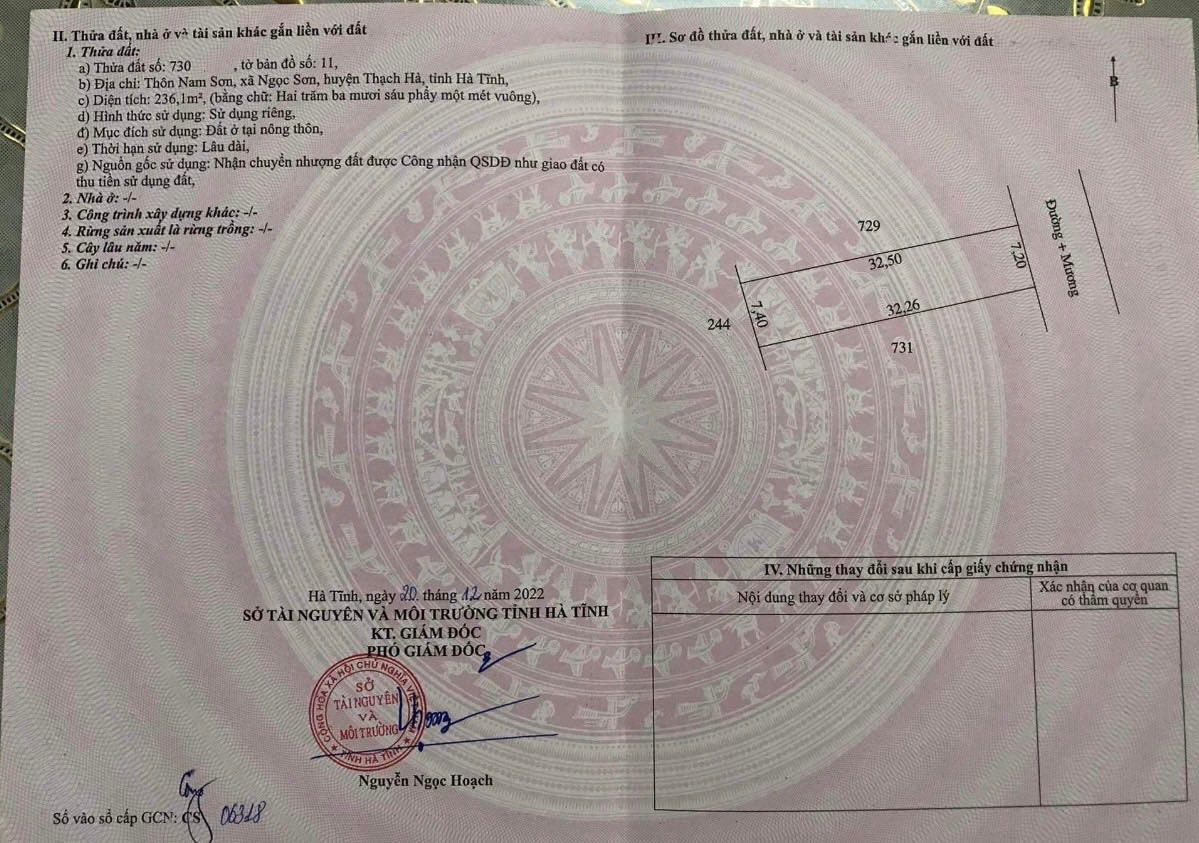 II. Thửa đất, nhà ở và tài sản khác gắn liền với đất
1. Thửa đất:
a) Thửa đất số: 730 , tờ bản đồ số: 11,
b) Địa chỉ: Thôn Nam Sơn, xã Ngọc Sơn, huyện Thạch Hà, tỉnh Hà Tĩnh,
c) Diện tích: 236,1m², (bằng chữ: Hai trăm ba mươi sáu phẩy một mét vuông),
d) Hình thức sử dụng: Sử dụng riêng,
đ) Mục đích sử dụng: Đất ở tại nông thôn,
e) Thời hạn sử dụng: Lâu dài,
g) Nguồn gốc sử dụng: Nhận chuyển nhượng đất được Công nhận QSDĐ như giao đất có
thu tiền sử dụng đất,
2. Nhà ở: -/-
3. Công trình xây dựng khác: -/-
4. Rừng sản xuất là rừng trồng: -/-
5. Cây lâu năm: -/-
6. Ghi chú: -/-
Hà Tĩnh, ngày 20 tháng 12 năm 2022
SỞ TÀI NGUYÊN VÀ MÔI TRƯỜNG TỈNH HÀ TĨNH
KT. GIÁM ĐỐC
PHÓ GIÁM ĐỐC
CỘNG HÒA XÃ HỘI CHỦ NGHĨA VIỆT NAM
SỞ
TÀI NGUYÊN
VÀ
MÔI TRƯỜNG
TỈNH HÀ TĨNH
Nguyễn Ngọc Hoạch
Số vào sổ cấp GCN: CS 06318
III. Sơ đồ thửa đất, nhà ở và tài sản khác gắn liền với đất
B
Đường + Mương
729
32,50
7,20
7,40
244
32,26
731
IV. Những thay đổi sau khi cấp giấy chứng nhận
Nội dung thay đổi và cơ sở pháp lý
Xác nhận của cơ quan
có thẩm quyền